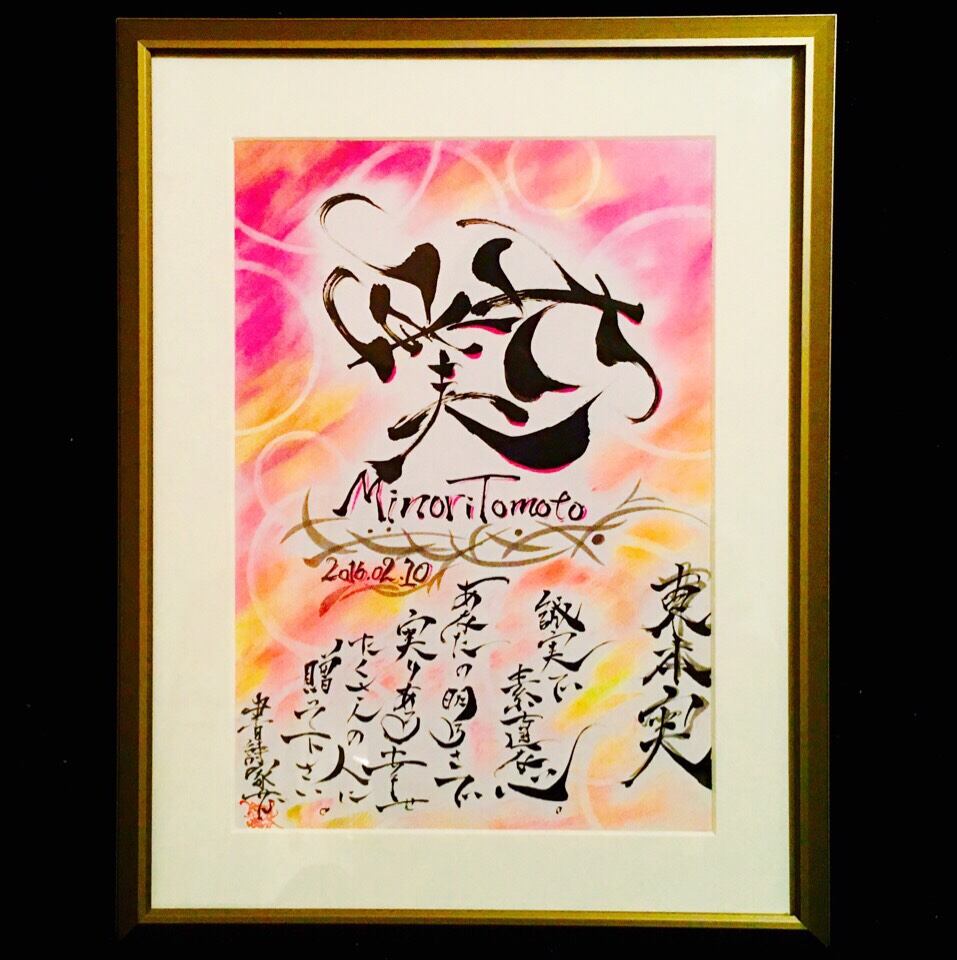 実
MinoriTomoto
2016.02.10
東本実
誠実で
素直な心。
あなたの明るさで
実りある幸せ
たくさんの人に
贈って下さい。